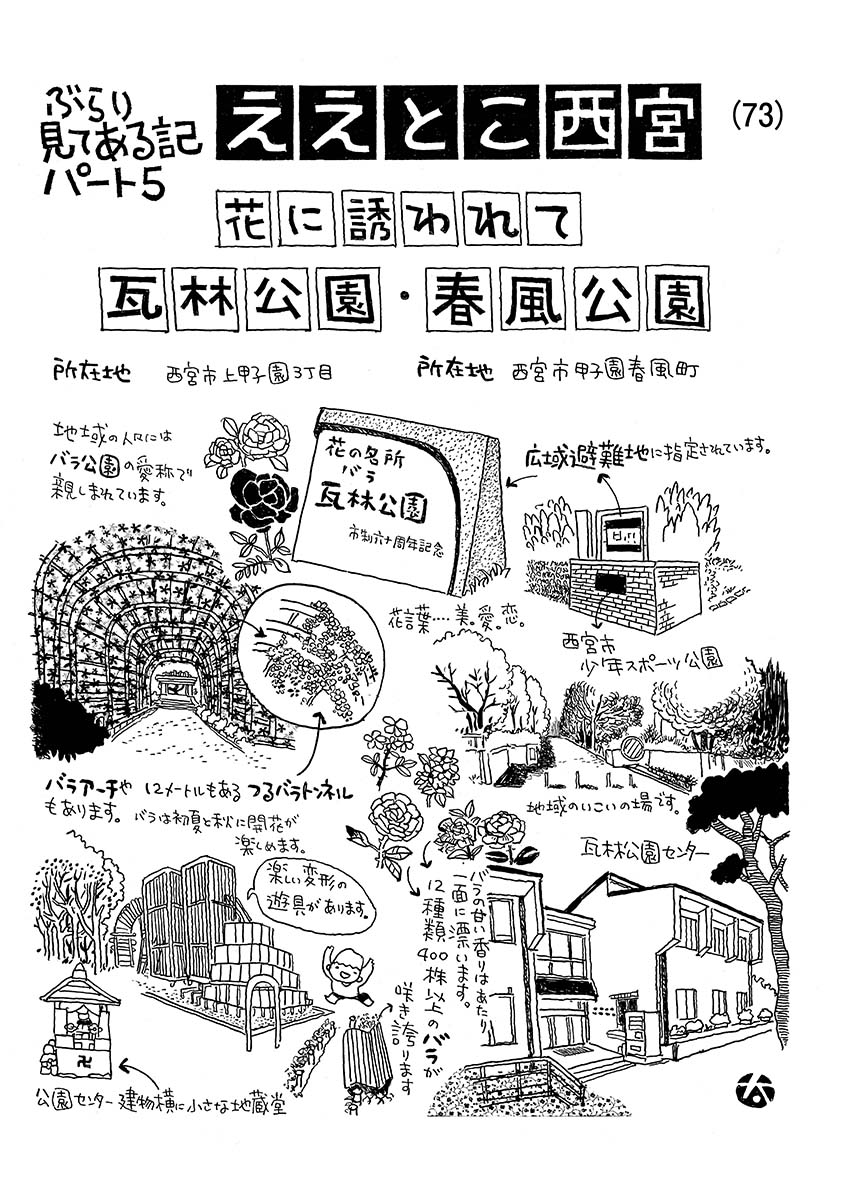 ぶらり
見てある記
パート5
ええとこ西宮
(73)
花に誘われて
瓦林公園・春風公園
所在地 西宮市上甲子園3丁目
所在地 西宮市甲子園春風町
地域の人々には
バラ公園の愛称で
親しまれています。
花の名所
バラ
瓦林公園
市制六十周年記念
広域避難地に指定されています。
花言葉‥‥美。愛。恋。
西宮市
少年スポーツ公園
バラアーチや 12メートルもある つるバラトンネル
もあります。 バラは初夏と秋に開花が
楽しめます。
地域のいこいの場です。
瓦林公園センター
楽しい変形の
遊具があります。
バラの甘い香りはあたり
一面に漂います。
12種類400株以上のバラが
咲き誇ります
卍
公園センター建物横に小さな地蔵堂